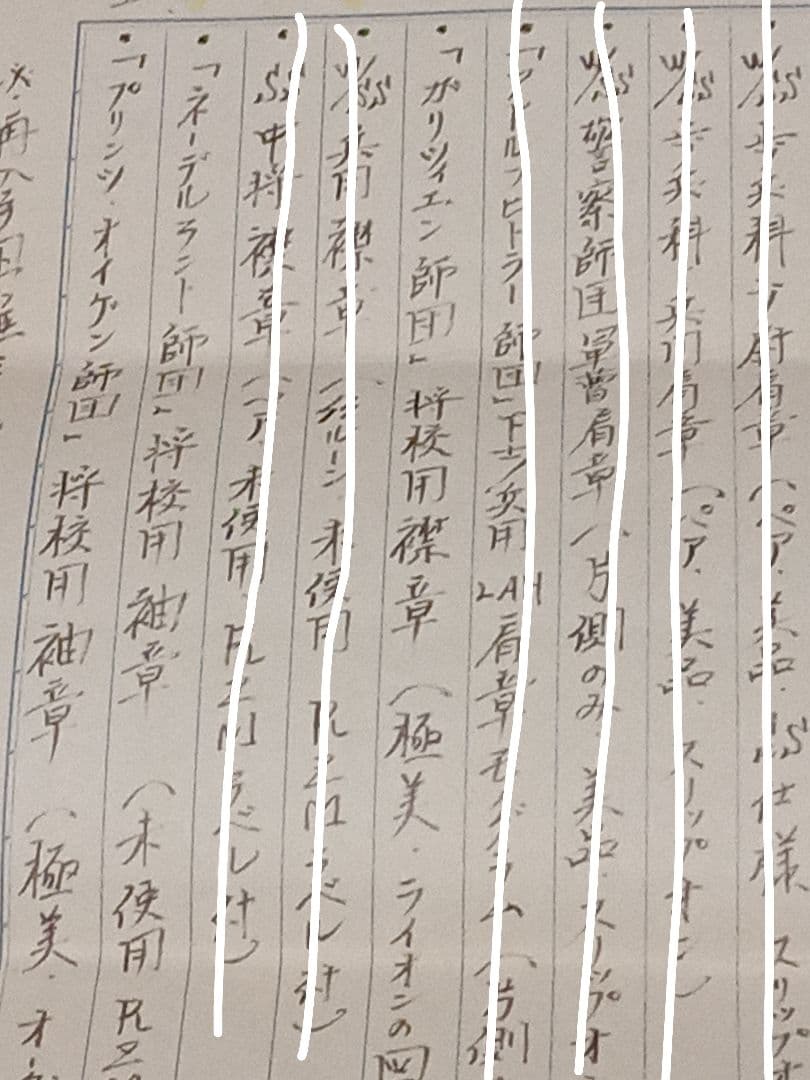 ・W/SS 歩兵科少尉肩章 (ペア・美品・SS仕様 スリップオ
・W/SS 歩兵科 兵用肩章 (ペア、美品・スリップオン)
・W/SS 警察師団軍曹肩章 (片側のみ、美品・スリップオ
・「アドルフ・ヒトラー師団」下士官用 LAH肩章モノグラム (片側
・「ガリツィエン師団」将校用襟章 (極美・ライオンの図
・W/SS 兵用襟章 未使用 RZMラベル付)
・SS中将襟章 (ペア 未使用、RZMラベル付)
・「ネーデルラント師団」将校用袖章 (未使用 RZ
・「プリンツ・オイゲン師団」将校用袖章 (極美・オー